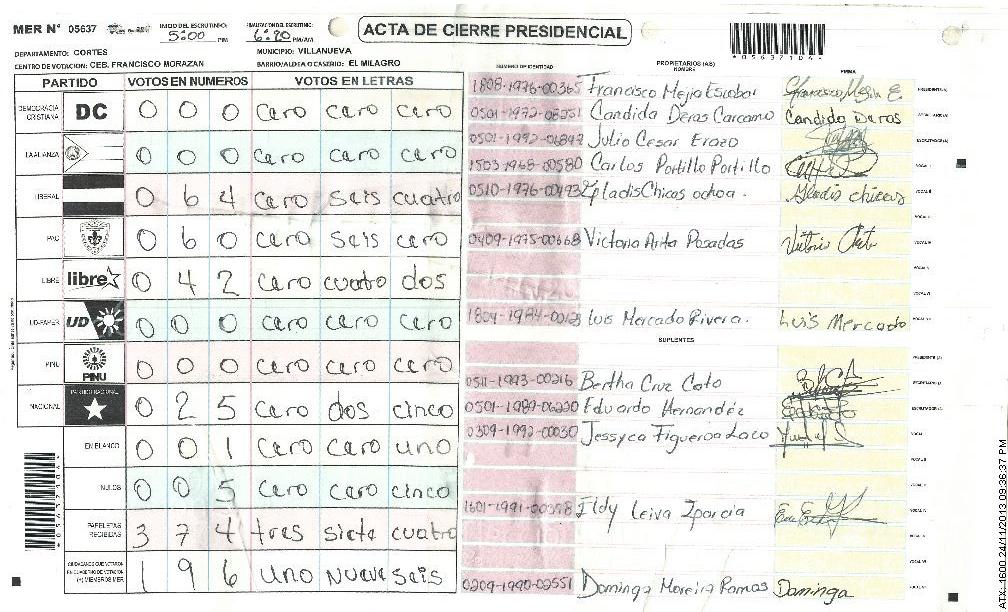 MER Nº 05637 INICIO DEL ESCRUTINIO: 5:00 PM FINALIZACION DEL ESCRUTINIO: PM/AM
ACTA DE CIERRE PRESIDENCIAL
DEPARTAMENTO: CORTES MUNICIPIO: VILLANUEVA
CENTRO DE VOTACION: CEB. FRANCISCO MORAZAN BARRIO/ALDEA O CASERIO: EL MILAGRO
PARTIDO VOTOS EN NUMEROS VOTOS EN LETRAS
DEMOCRACIA CRISTIANA DC 0 0 0 cero cero cero
LA ALIANZA 0 0 0 cero cero cero
LIBERAL 0 6 4 cero seis cuatro
PAC 0 6 0 cero seis cero
LIBRE libre 0 4 2 cero cuatro dos
UD-FAPER UD 0 0 0 cero cero cero
PINU PINU 0 0 0 cero cero cero
NACIONAL PARTIDO NACIONAL 0 2 5 cero dos cinco
EN BLANCO 0 0 1 cero cero uno
NULOS 0 0 5 cero cero cinco
PAPELETAS RECIBIDAS 3 7 4 tres siete cuatro
CIUDADANOS QUE VOTARON EN CUADERNO DE VOTACION (+) MIEMBROS MER 1 9 6 uno nueve seis
NUMERO DE IDENTIDAD PROPIETARIOS (AS) NOMBRE FIRMA
1808-1976-00365 Francisco Mejia Escobar PRESIDENTE(A)
Candida Deras Carcamo Candida Deras
Julio Cesar Erazo ESCRUTADOR(A)
1503-1968-00580 Carlos Portillo Portillo VOCAL I
Gladis Chicas ochoa. Gladis chicas VOCAL II
0409-1975-00668 Victoria Arita Posadas
Luis Mercado Rivera. Luis Mercado
SUPLENTES
PRESIDENTE (A)
0511-1993-00216 Bertha Cruz Coto SECRETARIO(A)
Eduardo Hernandez ESCRUTADOR(A)
0309-1992-00030 Jessyca Figueroa Laco VOCAL I
Eldy Leiva
0209-1990-02551 Dominga Moreira Ramos Dominga
*05637104*
ATX-1600.24/11/2013.09:36:37 PM